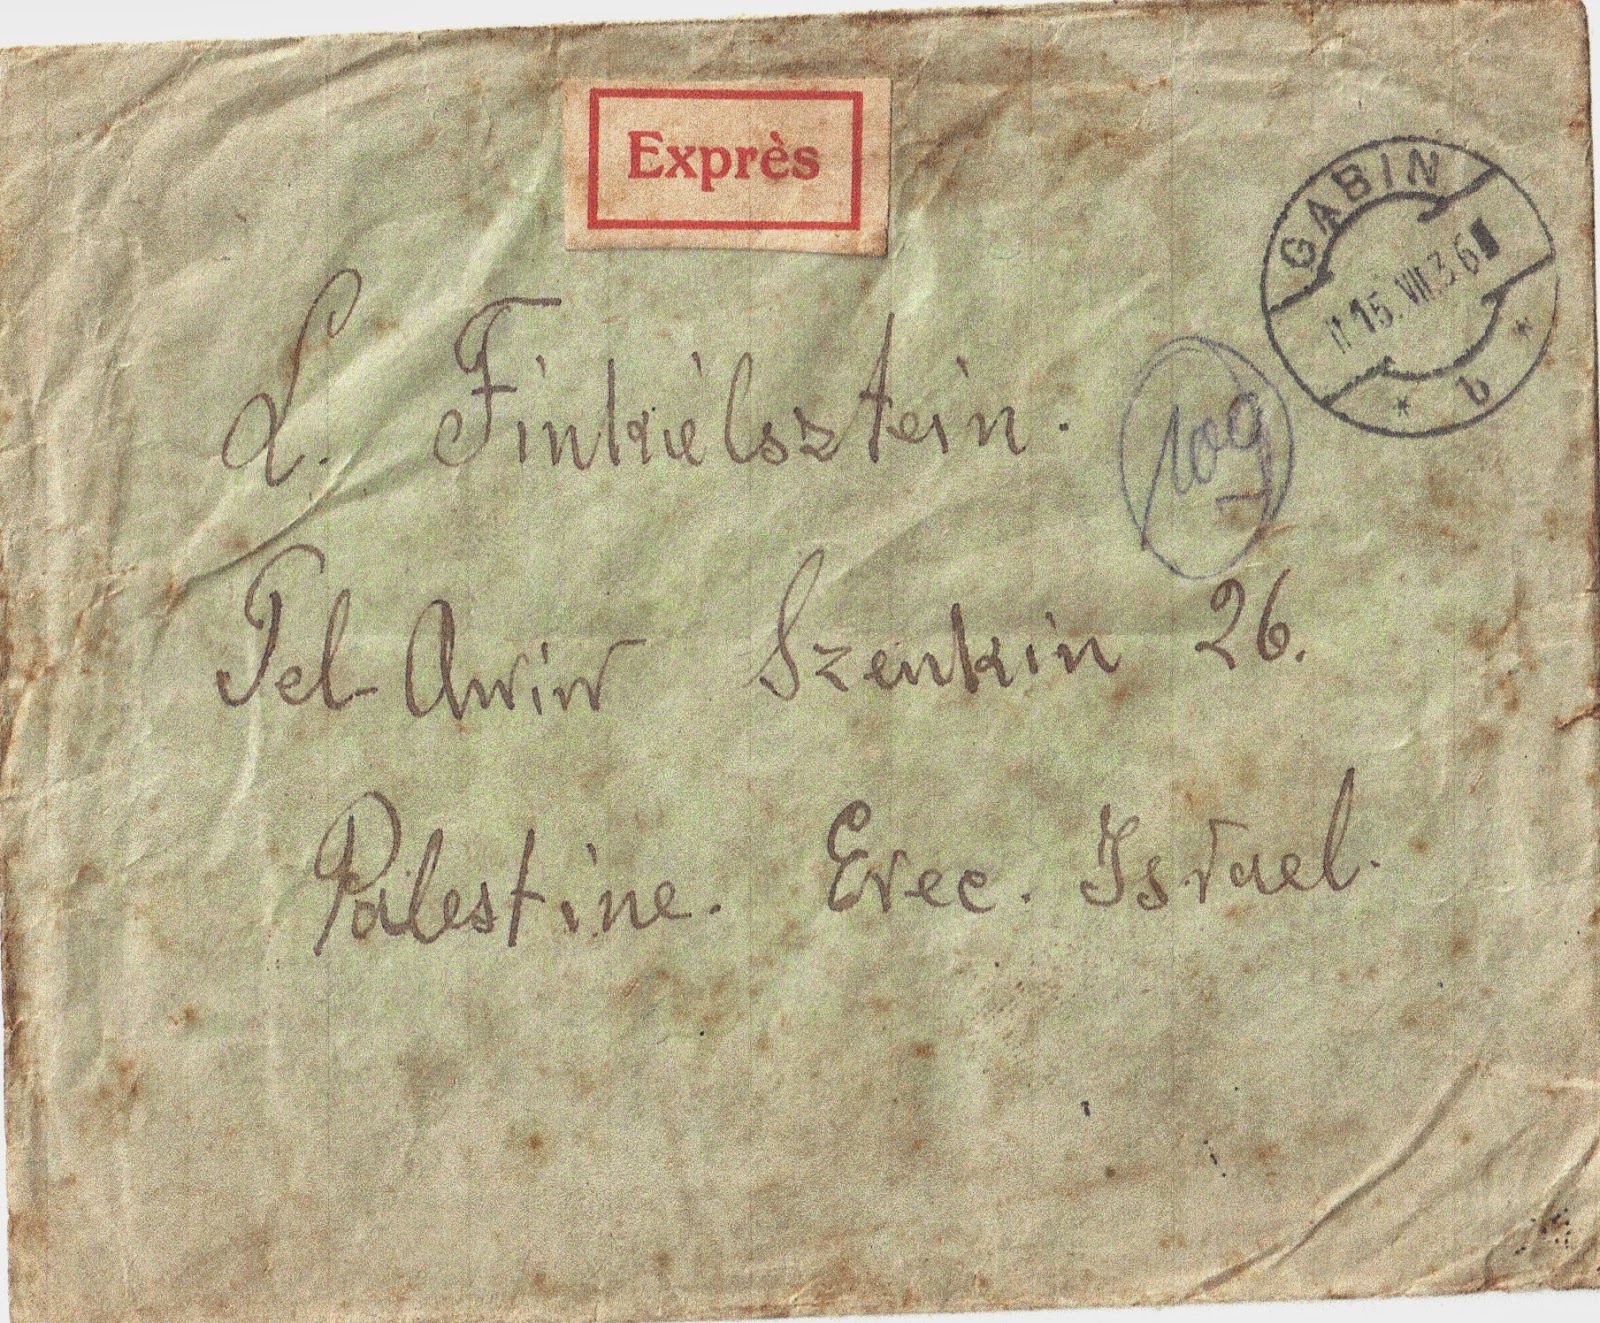 Exprès
GABIN
15.VII.36
b
109
L. Finkielsztein.
Tel-Awiw Szenkin 26.
Palestine. Erec. Israel.